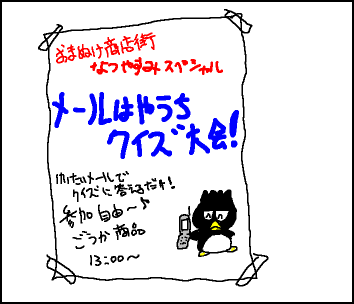 おまぬけ商店街
なつやすみスペシャル
メールはやうち
クイズ大会!
けいたいメールで
クイズに答えるだけ!
参加自由〜♪
ごうか商品
13:00〜